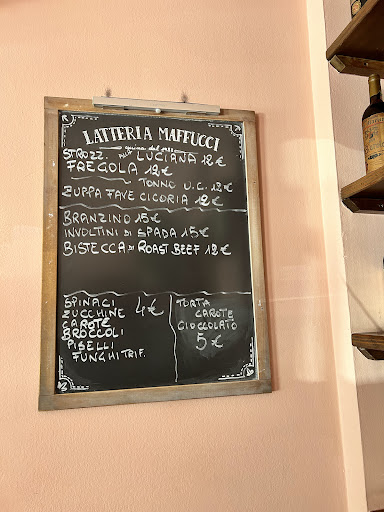 LATTERIA MAFFUCCI
cucina dal
STROZZ. ALLA LUCIANA 12€
FREGOLA 12€
TONNO U.C. 12€
ZUPPA FAVE CICORIA 12€
BRANZINO 15€
INVOLTINI DI SPADA 15€
BISTECCA DI ROAST BEEF 12€
SPINACI 4€
ZUCCHINE
CAROTE
BROCCOLI
PISELLI
FUNGHI TRIF.
TORTA
CAROTE
CIOCCOLATO
5€